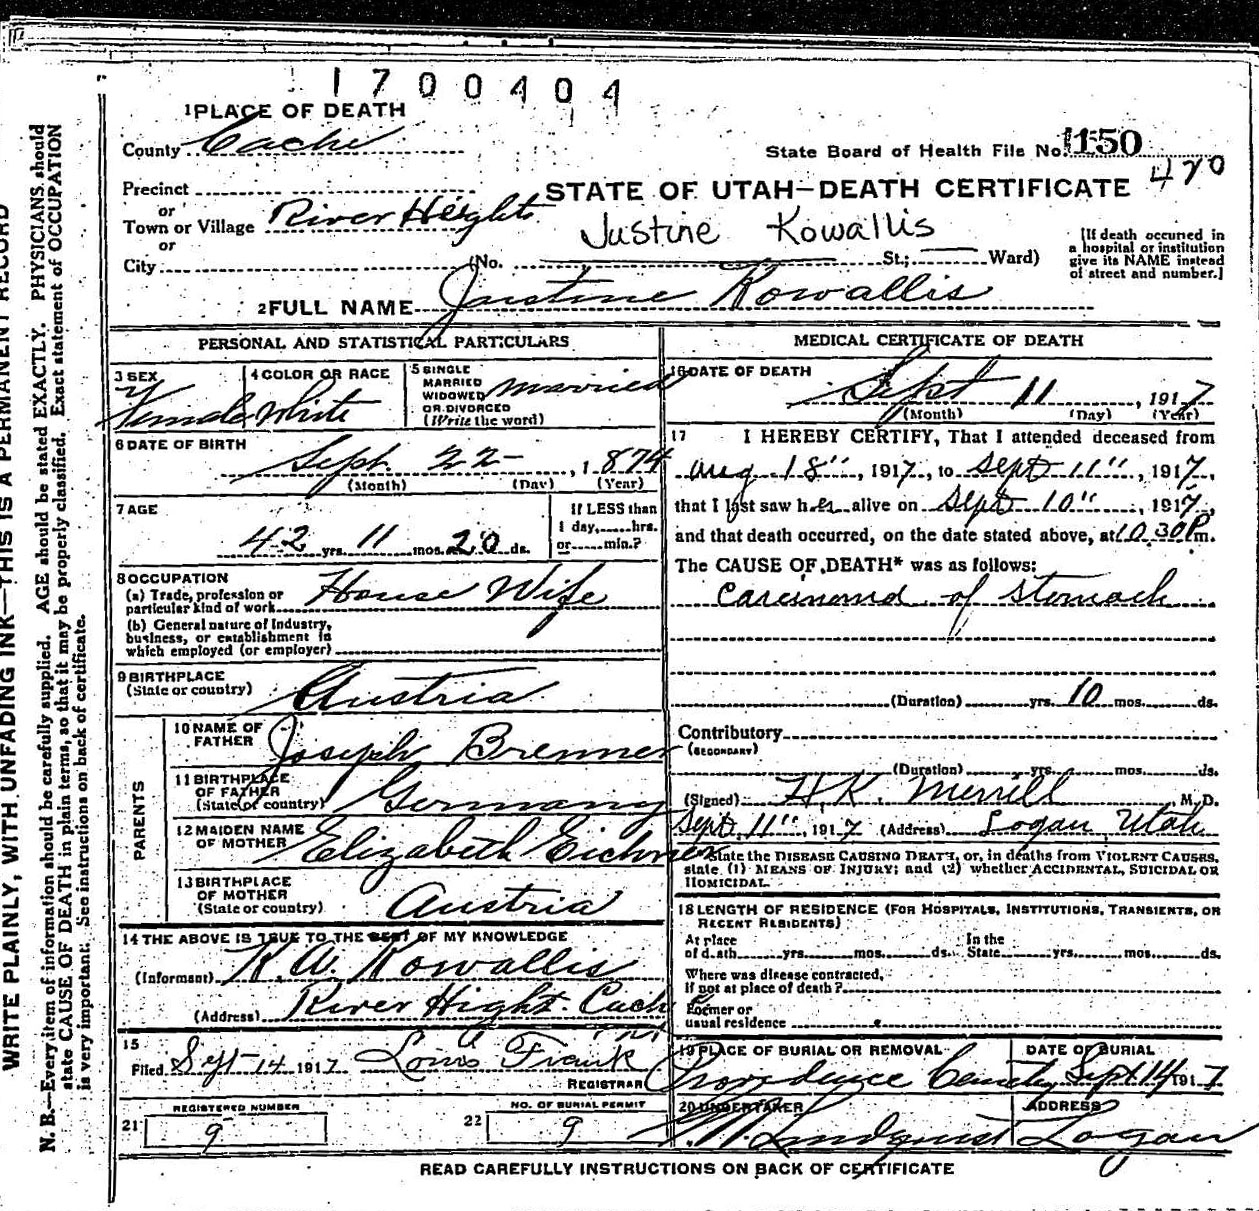 1700404
1 PLACE OF DEATH
County Cache
State Board of Health File No. 1150
470
Precinct
STATE OF UTAH—DEATH CERTIFICATE
or
Town or Village River Heights
Justine Kowallis
or
City (No. St.; Ward)
[If death occurred in a hospital or institution give its NAME instead of street and number.]
2 FULL NAME Justine Kowallis
PERSONAL AND STATISTICAL PARTICULARS
3 SEX Female
4 COLOR OR RACE White
5 SINGLE MARRIED WIDOWED OR DIVORCED (Write the word) married
6 DATE OF BIRTH
Sept. 22 , 1 874
(Month) (Day) (Year)
7 AGE
42 yrs. 11 mos. 20 ds.
If LESS than 1 day, hrs. or min.?
8 OCCUPATION
(a) Trade, profession or particular kind of work House Wife
(b) General nature of Industry, business, or establishment in which employed (or employer)
9 BIRTHPLACE
(State or country) Austria
PARENTS
10 NAME OF FATHER Joseph Brenner
11 BIRTHPLACE OF FATHER (State or country) Germany
12 MAIDEN NAME OF MOTHER Elizabeth Eichner
13 BIRTHPLACE OF MOTHER (State or country) Austria
14 THE ABOVE IS TRUE TO THE BEST OF MY KNOWLEDGE
(Informant) K. A. Kowallis
(Address) River Hight. Cach
15
Filed Sept 14 1917 Louis Frank
REGISTRAR
REGISTERED NUMBER
21 9
NO. OF BURIAL PERMIT
22 9
MEDICAL CERTIFICATE OF DEATH
16 DATE OF DEATH
Sept 11 , 1917
(Month) (Day) (Year)
17 I HEREBY CERTIFY, That I attended deceased from
Aug 18", 1917, to Sept 11", 1917,
that I last saw her alive on Sept 10", 1917,
and that death occurred, on the date stated above, at 10 30 P m.
The CAUSE OF DEATH* was as follows:
Carcinoma of stomach
(Duration) yrs. 10 mos. ds.
Contributory
(SECONDARY)
(Duration) yrs. mos. ds.
(Signed) H. K. Merrill M. D.
Sept 11", 1917 (Address) Logan Utah
State the DISEASE CAUSING DEATH, or, in deaths from VIOLENT CAUSES,
state (1) MEANS OF INJURY; and (2) whether ACCIDENTAL, SUICIDAL OR
HOMICIDAL.
18 LENGTH OF RESIDENCE (FOR HOSPITALS, INSTITUTIONS, TRANSIENTS, OR
RECENT RESIDENTS)
At place of death yrs. mos. ds. In the State yrs. mos. ds.
Where was disease contracted,
If not at place of death?
Former or
usual residence
19 PLACE OF BURIAL OR REMOVAL
Providence Cemetery
DATE OF BURIAL
Sept 14 1917
20 UNDERTAKER
Lindquist
ADDRESS
Logan
READ CAREFULLY INSTRUCTIONS ON BACK OF CERTIFICATE
WRITE PLAINLY, WITH UNFADING INK—THIS IS A PERMANENT RECORD
N. B.—Every item of information should be carefully supplied. AGE should be stated EXACTLY. PHYSICIANS should
state CAUSE OF DEATH in plain terms, so that it may be properly classified. Exact statement of OCCUPATION
is very important. See instructions on back of certificate.